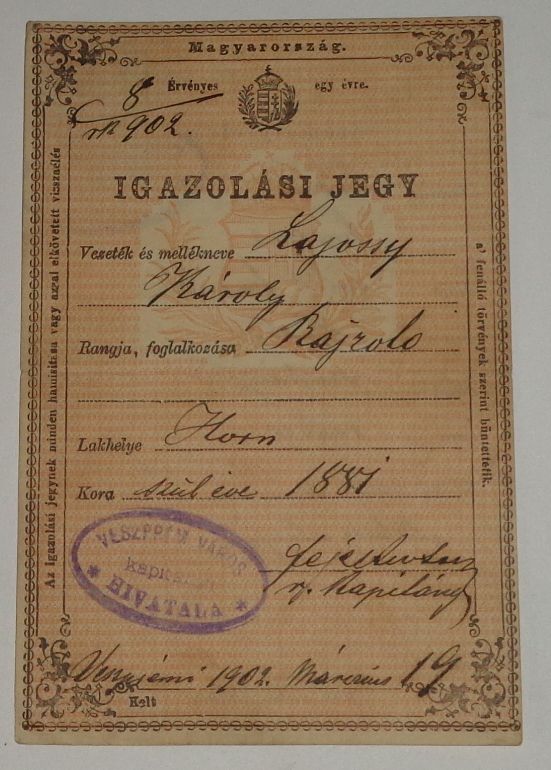 Magyarország.
Érvényes egy évre.
8
902.
IGAZOLÁSI JEGY
Vezeték és mellékneve Lajossy
Károly
Rangja, foglalkozása Rajzoló
Lakhelye Horn
Kora szül éve 1881
VESZPRÉM VÁROS
kapitányi
HIVATALA
r. kapitány
1902. Március 19
Kelt
Az igazolási jegynek minden hamisítása vagy azzal elkövetett visszaélés
a' fenálló törvények szerint büntettetik.